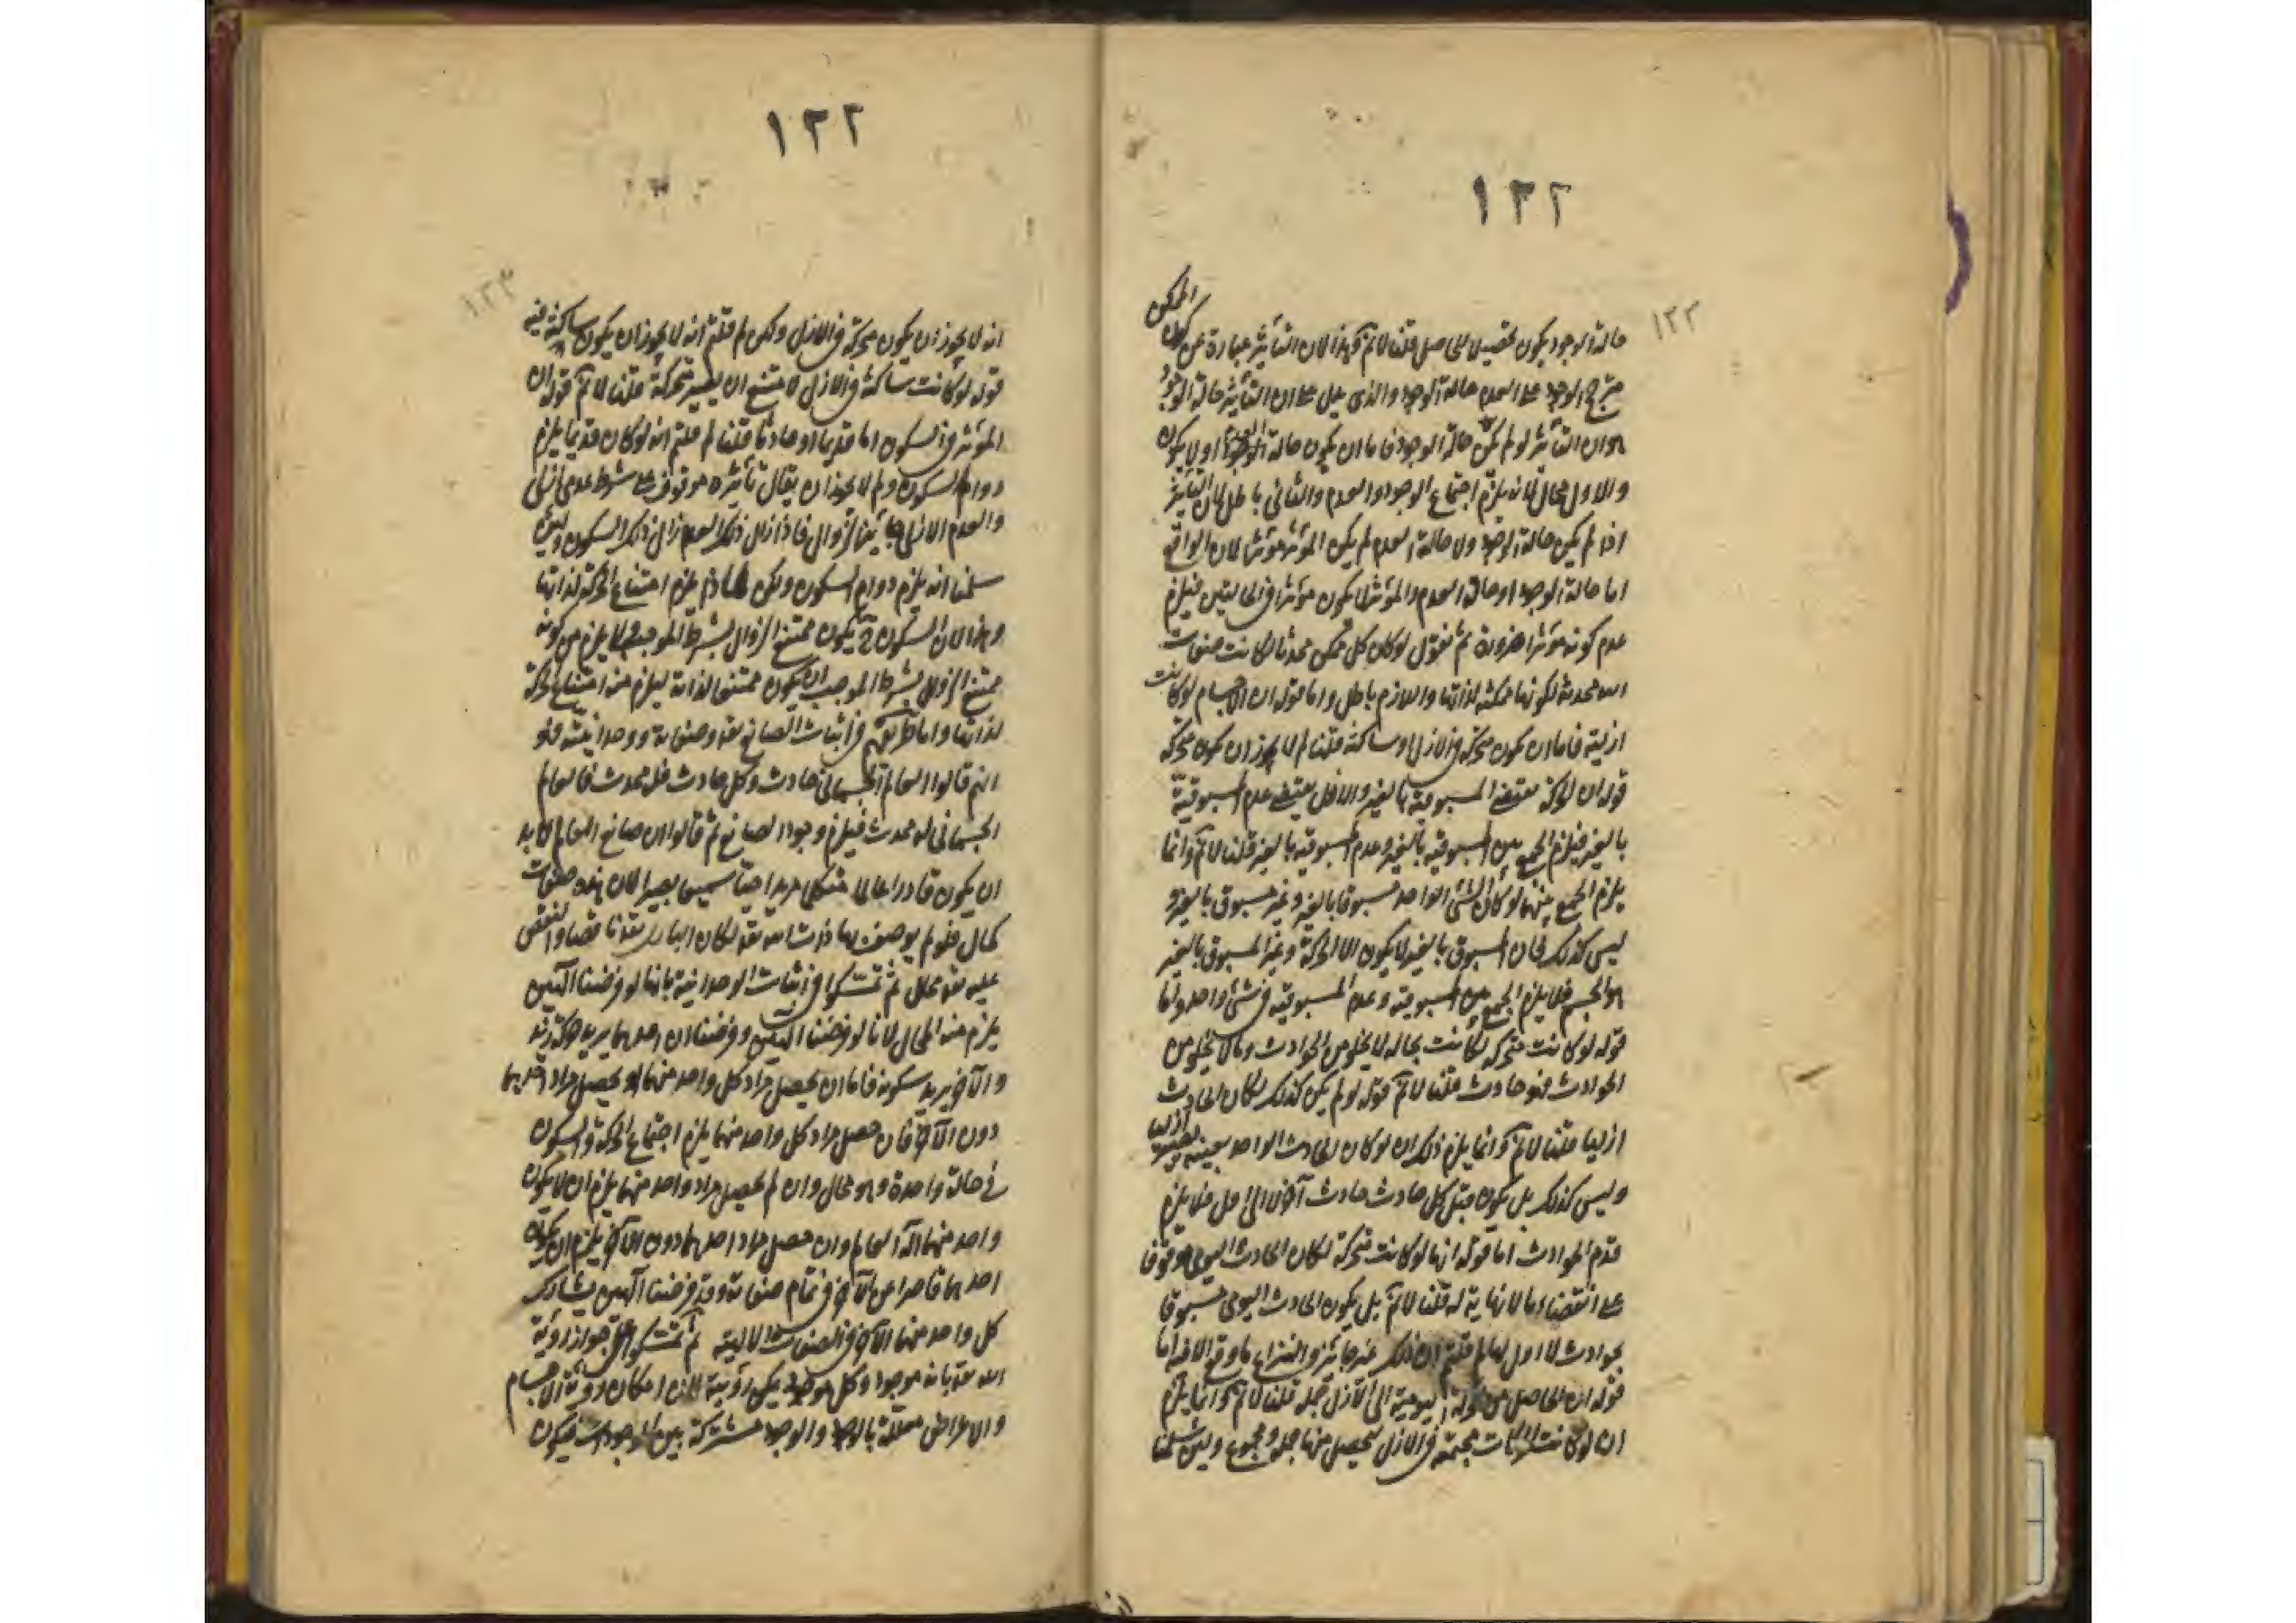 ١٢٢
١٢٢
الممكن
حالة الوجود يكون تحصيلا للحاصل قلنا لا نم وهذا لان التأثير عبارة عن كون
مترجح الوجود على العدم حالة الوجود والذى يدل على ان التأثير حالة الوجود
هو ان التأثير لو لم يكن حالة الوجود فاما ان يكون حالة العدم او لا يكون
والاول محال لانه يلزم اجتماع الوجود والعدم والثانى باطل لان التأثير
اذا لم يكن حالة الوجود ولا حالة العدم لم يكن المؤثر مؤثرا لان الواقع
اما حالة الوجود او حالة العدم والمؤثر لا يكون مؤثرا فى الحالتين فيلزم
عدم كونه مؤثرا ضرورة ثم نقول لو كان كل ممكن محدثا لكانت صفات
الله محدثة لكونها ممكنة لذاتها واللازم باطل واما قوله ان الاجسام لو كانت
ازلية فاما ان يكون متحركة فى الازل او ساكنة قلنا لم لا يجوز ان يكون متحركة
قوله ان الحركة يقتضى المسبوقية بالغير والازل يقتضى عدم المسبوقية
بالغير فيلزم الجمع بين المسبوقية بالغير وعدم المسبوقية بالغير قلنا لا نم وانما
يلزم الجمع بينهما لو كان الشئ الواحد مسبوقا بالغير وغير مسبوق بالغير و
ليس كذلك فان المسبوق بالغير لا يكون الا الحركة وغير المسبوق بالغير
هو الجسم فلا يلزم الجمع بين المسبوقية وعدم المسبوقية فى شئ واحد واما
قوله لو كانت متحركة لكانت بحاله لا يخلو من الحوادث وما لا يخلو من
الحوادث فهو حادث قلنا لا نم قوله لو لم يكن كذلك لكان الحادث
ازليا قلنا لا نم وانما يلزم ذلك ان لو كان الحادث الواحد بعينه ازليا
وليس كذلك بل يكون قبل كل حادث حادث آخر لا الى اول فلا يلزم
قدم الحوادث اما قوله انها لو كانت متحركة لكان الحادث اليومى موقوفا
على انقضاء ما لا نهاية له قلنا لا نم بل يكون الحادث اليومى مسبوقا
بحوادث لا اول لها لم قلتم ان ذلك غير جائز والنزاع ما وقع الا فيه اما
قوله ان الحاصل من الحركة اليومية الى الازل جملة قلنا لا نم وانما يلزم
ان لو كانت الحركات مجتمعة فى الازل ليحصل منها جملة ومجموع ولئن سلمنا
١٢٢
١٢٣
انه لا يجوز ان يكون متحركة فى الازل ولكن لم قلتم انه لا يجوز ان يكون ساكنة فيه
قوله لو كانت ساكنة فى الازل لامتنع ان يصير متحركة قلنا لا نم قوله ان
المؤثر فى السكون اما قديما او حادثا قلنا لم قلتم انه لو كان قديما يلزم
دوام السكون ولم لا يجوز ان يقال تأثيره موقوف على شرط عدمى ازلى
والعدم الازلى جائز الزوال فاذا زال ذلك العدم زال ذلك السكون ولئن
سلمنا انه يلزم دوام السكون ولكن لماذا يلزم امتناع الحركة لذاتها
وهذا لان السكون ح يكون ممتنع الزوال بشرط الموجب ولا يلزم من كونه
ممتنع الزوال بشرط الموجب ان يكون ممتنعا لذاته ليلزم منه امتناع الحركة
لذاتها واما طريقهم فى اثبات الصانع تعه وصفاته ووحدانيته فهو
انهم قالوا العالم الجسمانى حادث وكل حادث فله محدث فالعالم
الجسمانى له محدث فيلزم وجود الصانع ثم قالوا ان صانع العالم لا بد
ان يكون قادرا عالما متكلما مريدا حيا سميعا بصيرا لان هذه صفات
كمال فلو لم يوصف بها ذات الله تعه لكان البارى تعه ناقصا والنقص
عليه تعه محال ثم تمسكوا فى اثبات الوحدانية بانا لو فرضنا آلهين
يلزم منه المحال لانا لو فرضنا الهين وفرضنا ان احدهما يريد حركة زيد
والآخر يريد سكونه فاما ان يحصل مراد كل واحد منهما او يحصل مراد احدهما
دون الآخر فان حصل مراد كل واحد منهما يلزم اجتماع الحركة والسكون
فى حالة واحدة وهو محال وان لم يحصل مراد واحد منهما يلزم ان لا يكون
واحد منهما اله العالم وان حصل مراد احدهما دون الآخر يلزم ان يكون
احدهما قاصرا عن الآخر فى تمام صفاته وقد فرضنا آلهين يشارك
كل واحد منهما الآخر فى الصفات الالهية ثم تمسكوا على جواز رؤية
الله تعه بانه موجود وكل موجود يمكن رؤيته لان امكان رؤية الاجسام
والاعراض معللة بالوجود والوجود مشتركة بين الموجودات فيكون